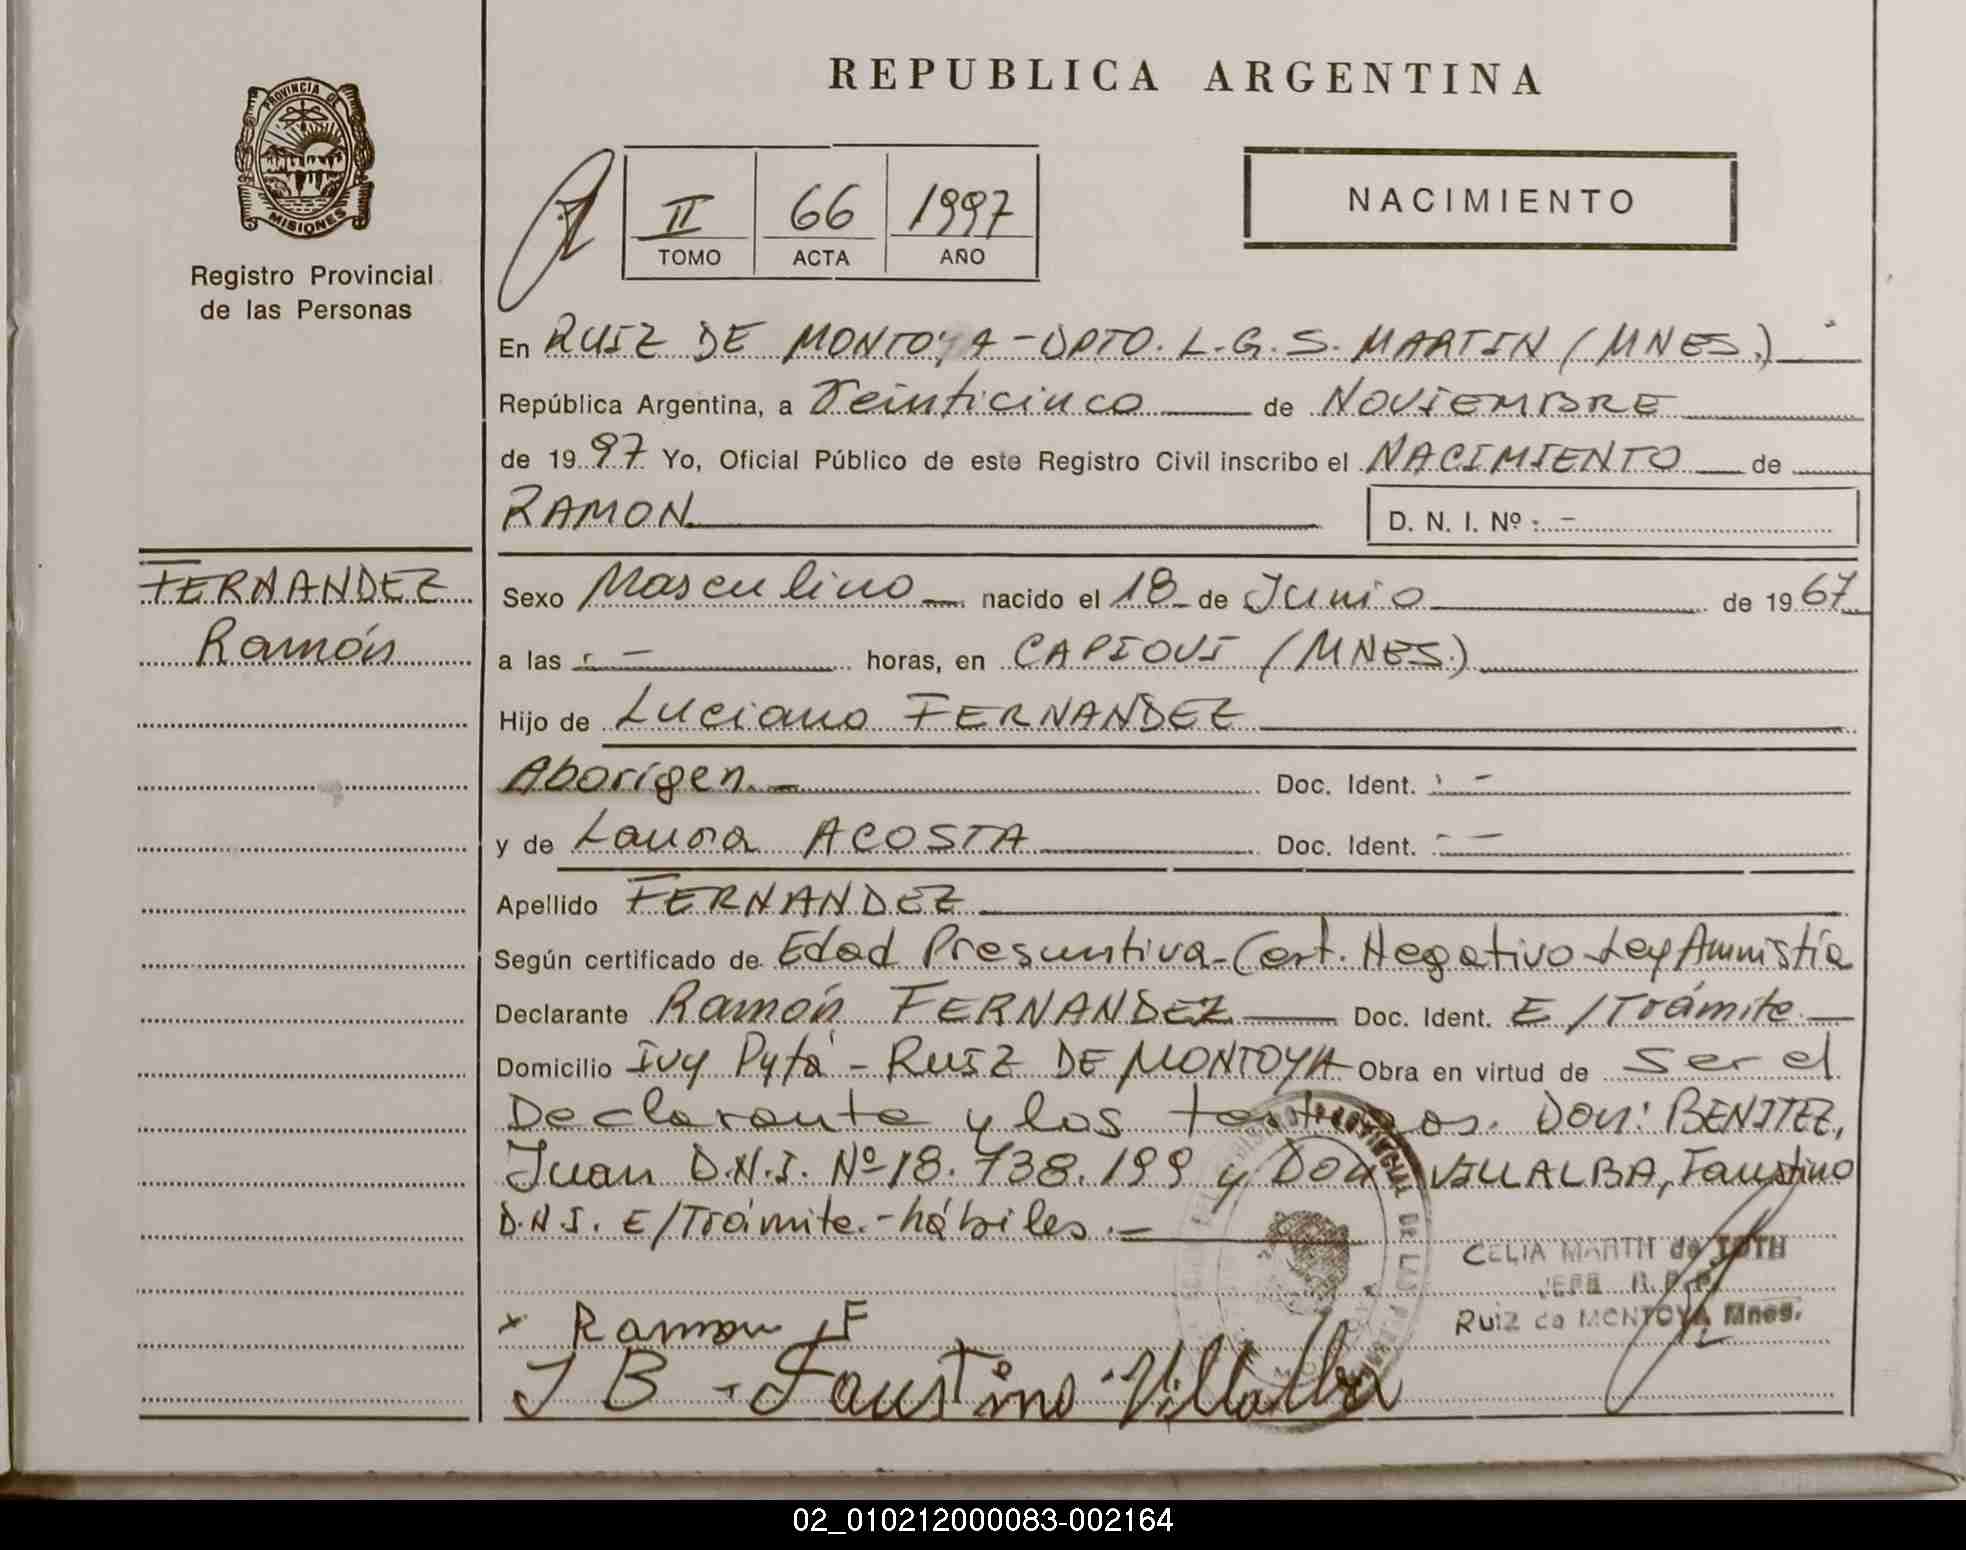 REPUBLICA ARGENTINA
PROVINCIA DE
MISIONES
Registro Provincial
de las Personas
II 66 1997
TOMO ACTA AÑO
NACIMIENTO
En RUIZ DE MONTOYA - DPTO. L.G.S. MARTIN (MNES.)
República Argentina, a Veinticinco de NOVIEMBRE
de 1997 Yo, Oficial Público de este Registro Civil inscribo el NACIMIENTO de
RAMON D. N. I. Nº : -
FERNANDEZ
Ramón
Sexo Masculino nacido el 18 de Junio de 1967
a las - horas, en CAPIOVI (MNES.)
Hijo de Luciano FERNANDEZ
Aborigen. - Doc. Ident. -
y de Laura ACOSTA Doc. Ident. -
Apellido FERNANDEZ
Según certificado de Edad Presuntiva - Cert. Negativo Ley Amnistía
Declarante Ramón FERNANDEZ Doc. Ident. E/Trámite
Domicilio Ivy Pytá - RUIZ DE MONTOYA Obra en virtud de Ser el
Declarante y los testigos. Don: BENITEZ,
Juan D.N.I. Nº 18.738.199 y Don VILLALBA, Faustino
D.N.I. E/Trámite. - hábiles. -
CELIA MARTH de TOTH
JEFE R.P.P.
Ruiz de MONTOYA, Mnes.
x Ramon F
J B - Faustino Villalba
02_010212000083-002164